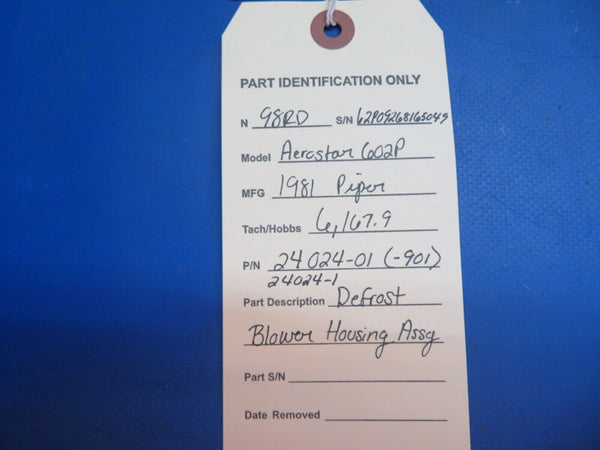 PART IDENTIFICATION ONLY
N 98RD S/N 62P09268165049
Model Aerostar 602P
MFG 1981 Piper
Tach/Hobbs 6,167.9
P/N 24024-01 (-901)
24024-1
Part Description Defrost
Blower Housing Assy
Part S/N
Date Removed